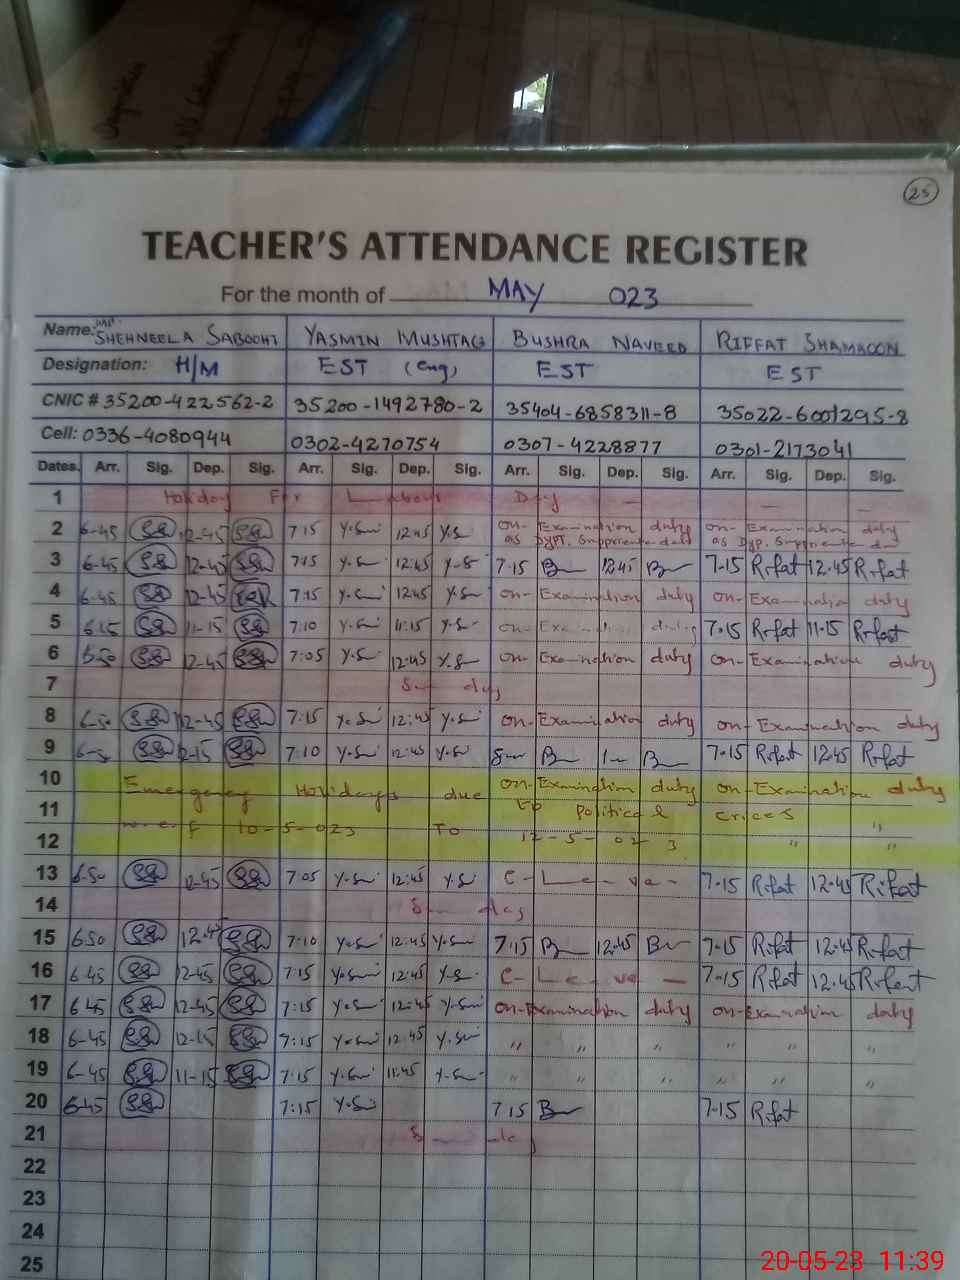 25
TEACHER'S ATTENDANCE REGISTER
For the month of MAY 023
Name: SHEHNEELA SABOOHI YASMIN MUSHTAQ BUSHRA NAVEED RIFFAT SHAMAOON
Designation: H/M EST (Eng) EST EST
CNIC # 35200-422562-2 35200-1492780-2 35404-6858311-8 35022-6001295-8
Cell: 0336-4080944 0302-4270754 0307-4228877 0301-2173041
Dates. Arr. Sig. Dep. Sig. Arr. Sig. Dep. Sig. Arr. Sig. Dep. Sig. Arr. Sig. Dep. Sig.
1 Holiday For Labour Day
2 6-45 12-45 7:15 12:45 on- Examination duty on- Examination duty
as as
3 6-45 12-45 7:15 12:45 7:15 12:45 7-15 Rifat 12.45 Rifat
4 6-45 12-45 7:15 12:45 on- Examination duty on- Examination duty
5 11-15 7:10 11:15 on- Examination duty 7-15 Rifat 11-15 Rifat
6 12-45 7:05 12:45 on- Examination duty on- Examination duty
7 Sunday
8 6-50 12-45 7:15 12:45 on- Examination duty on- Examination duty
9 6-50 12-15 7:10 12:45 7-15 Rifat 12.45 Rifat
10 Emergency Holidays due on- Examination duty on- Examination duty
11 To Political crices "
12 w.e.f 10-5-023 To 12-5-023 " "
13 6-50 12-45 7:05 12:45 C- Leave - 7-15 Rifat 12.45 Rifat
14 Sunday
15 6-50 12.45 7:10 12:45 7:15 12:45 7-15 Rifat 12.45 Rifat
16 6-45 12-45 7:15 12:45 C- Leave - 7-15 Rifat 12.45 Rifat
17 6-45 12-45 7:15 12:45 on- Examination duty on- Examination duty
18 6-45 12-15 7:15 12:45 " " " " " "
19 6-45 11-15 7:15 11:45 " " " " " "
20 6-45 7:15 7:15 7-15 Rifat
21 Sunday
22
23
24
25
20-05-23 11:39